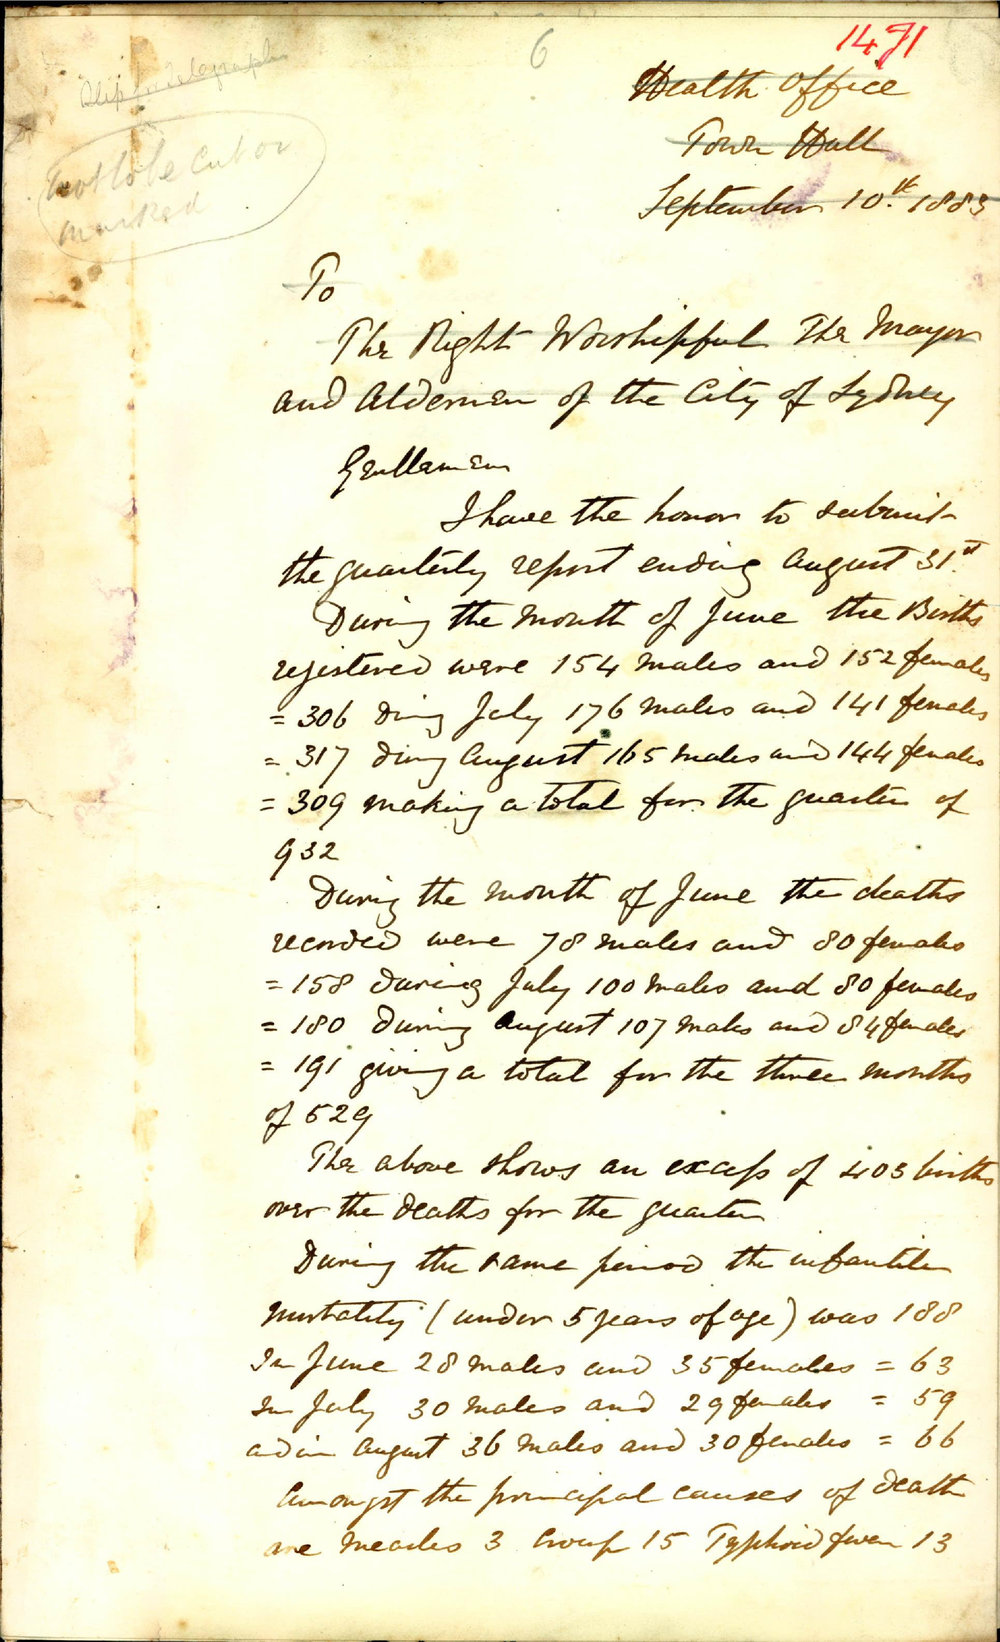 6
1471
Slip for Telegraph
not to be cut or
marked
Health Office
Town Hall
September 10.th 1883
To
The Right Worshipful The Mayor
and Aldermen of the City of Sydney
Gentlemen
I have the honor to submit
the quarterly report ending August 31st.
During the month of June the Births
registered were 154 males and 152 females
= 306 during July 176 males and 141 females
= 317 during August 165 males and 144 females
= 309 making a total for the quarter of
932
During the month of June the deaths
recorded were 78 males and 80 females
= 158 during July 100 males and 80 females
= 180 during August 107 males and 84 females
= 191 giving a total for the three months
of 529
The above shows an excess of 403 births
over the deaths for the quarter
During the same period the infantile
mortality (under 5 years of age) was 188
In June 28 males and 35 females = 63
In July 30 males and 29 females = 59
and in August 36 males and 30 females = 66
Amongst the principal causes of death
are Measles 3 Croup 15 Typhoid fever 13